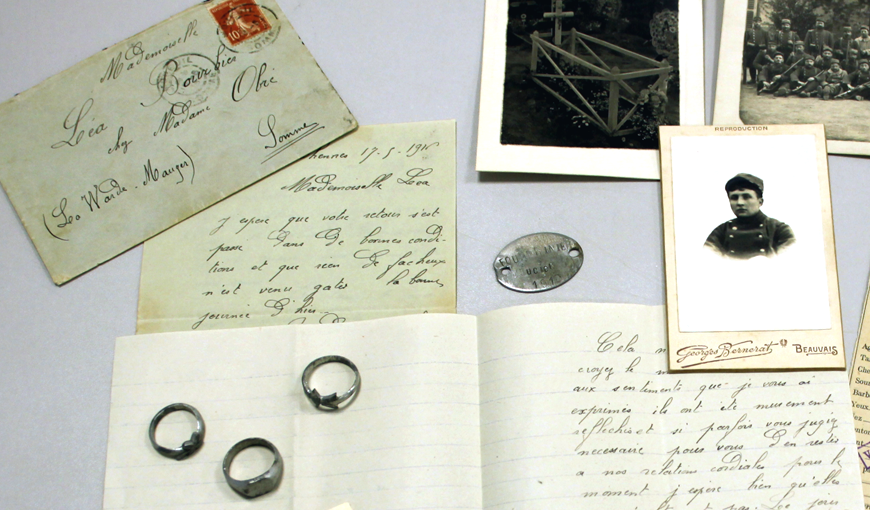 Mademoiselle
Léa Bourbier
chez Madame Obré
(Léo Warde-Mauger)
Somme
10
17-5-1916
Mademoiselle Léa
j'espère que votre retour s'est
passé dans de bonnes condi-
tions et que rien de facheux
n'est venu gater la bonne
journée d'hier.
1917
REPRODUCTION
Georges Bernerat
BEAUVAIS
Cela
croyez le
aux sentiments que je vous ai
exprimés ils ont été murement
reflechis et si parfois vous jugiez
necessaire pour vous d'en rester
a nos relations cordiales pour le
moment j'espere bien qu'elles